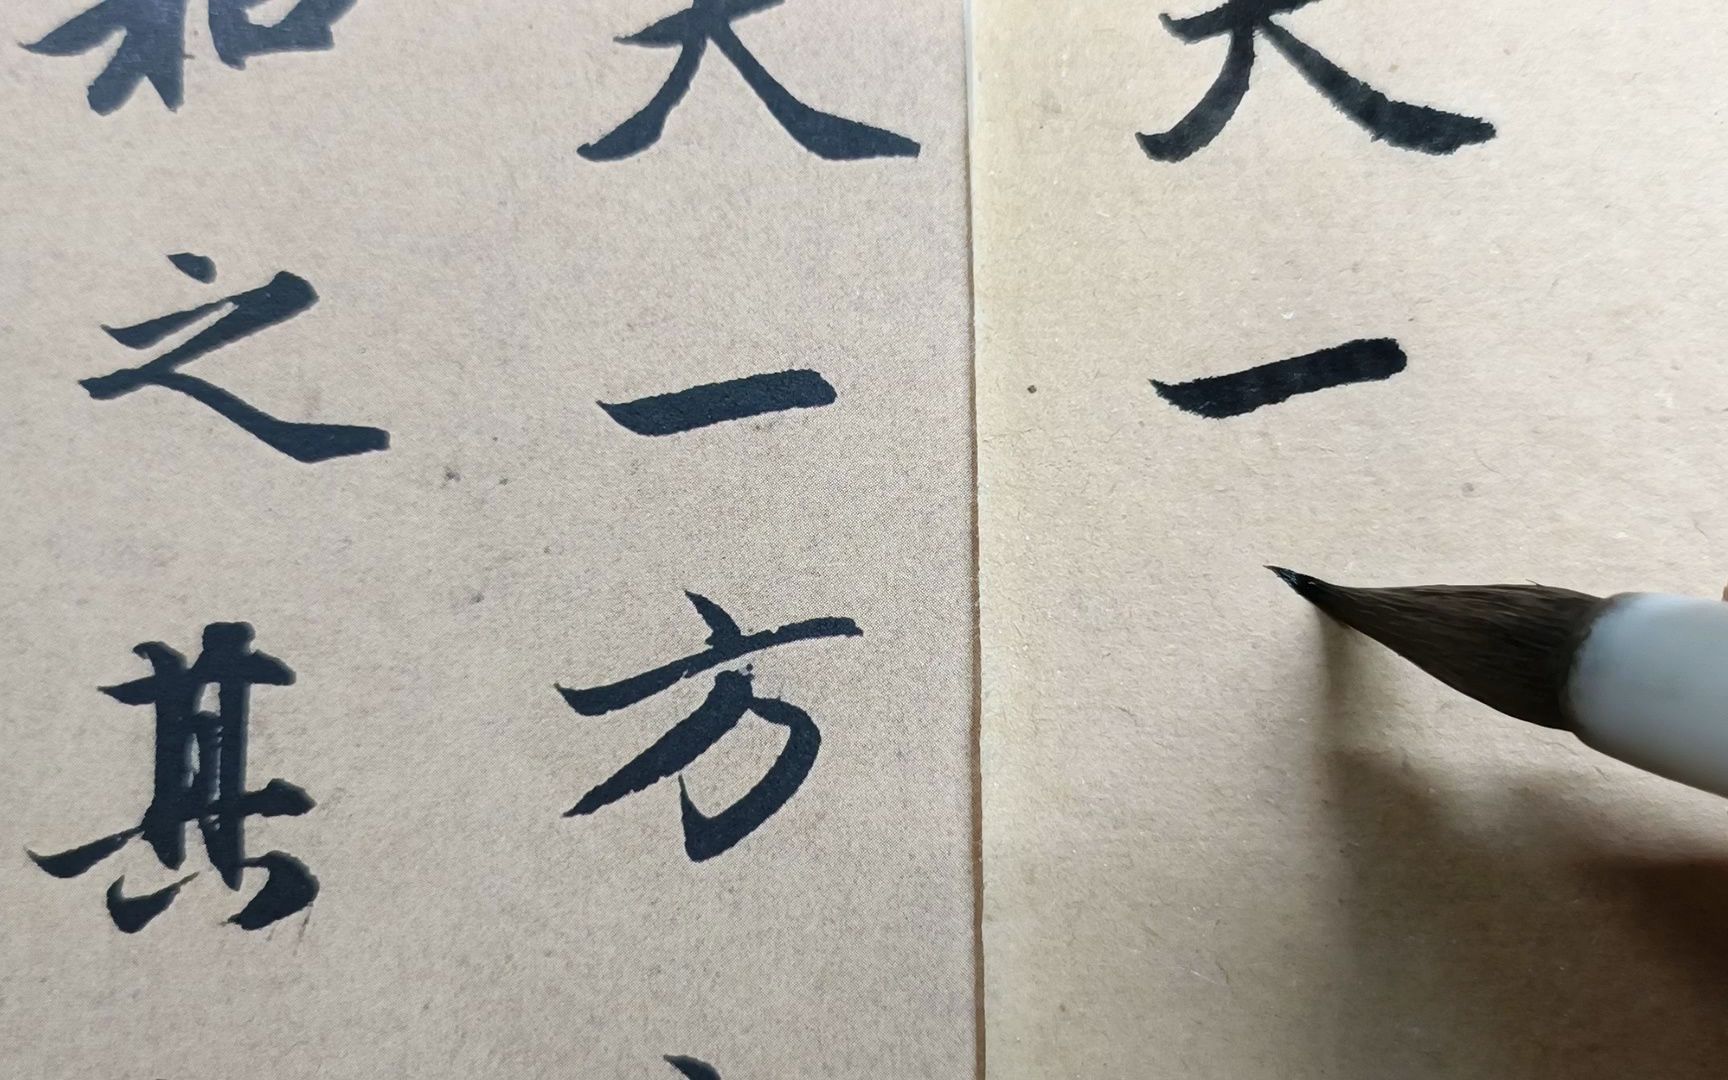 天一
天一方
和之其